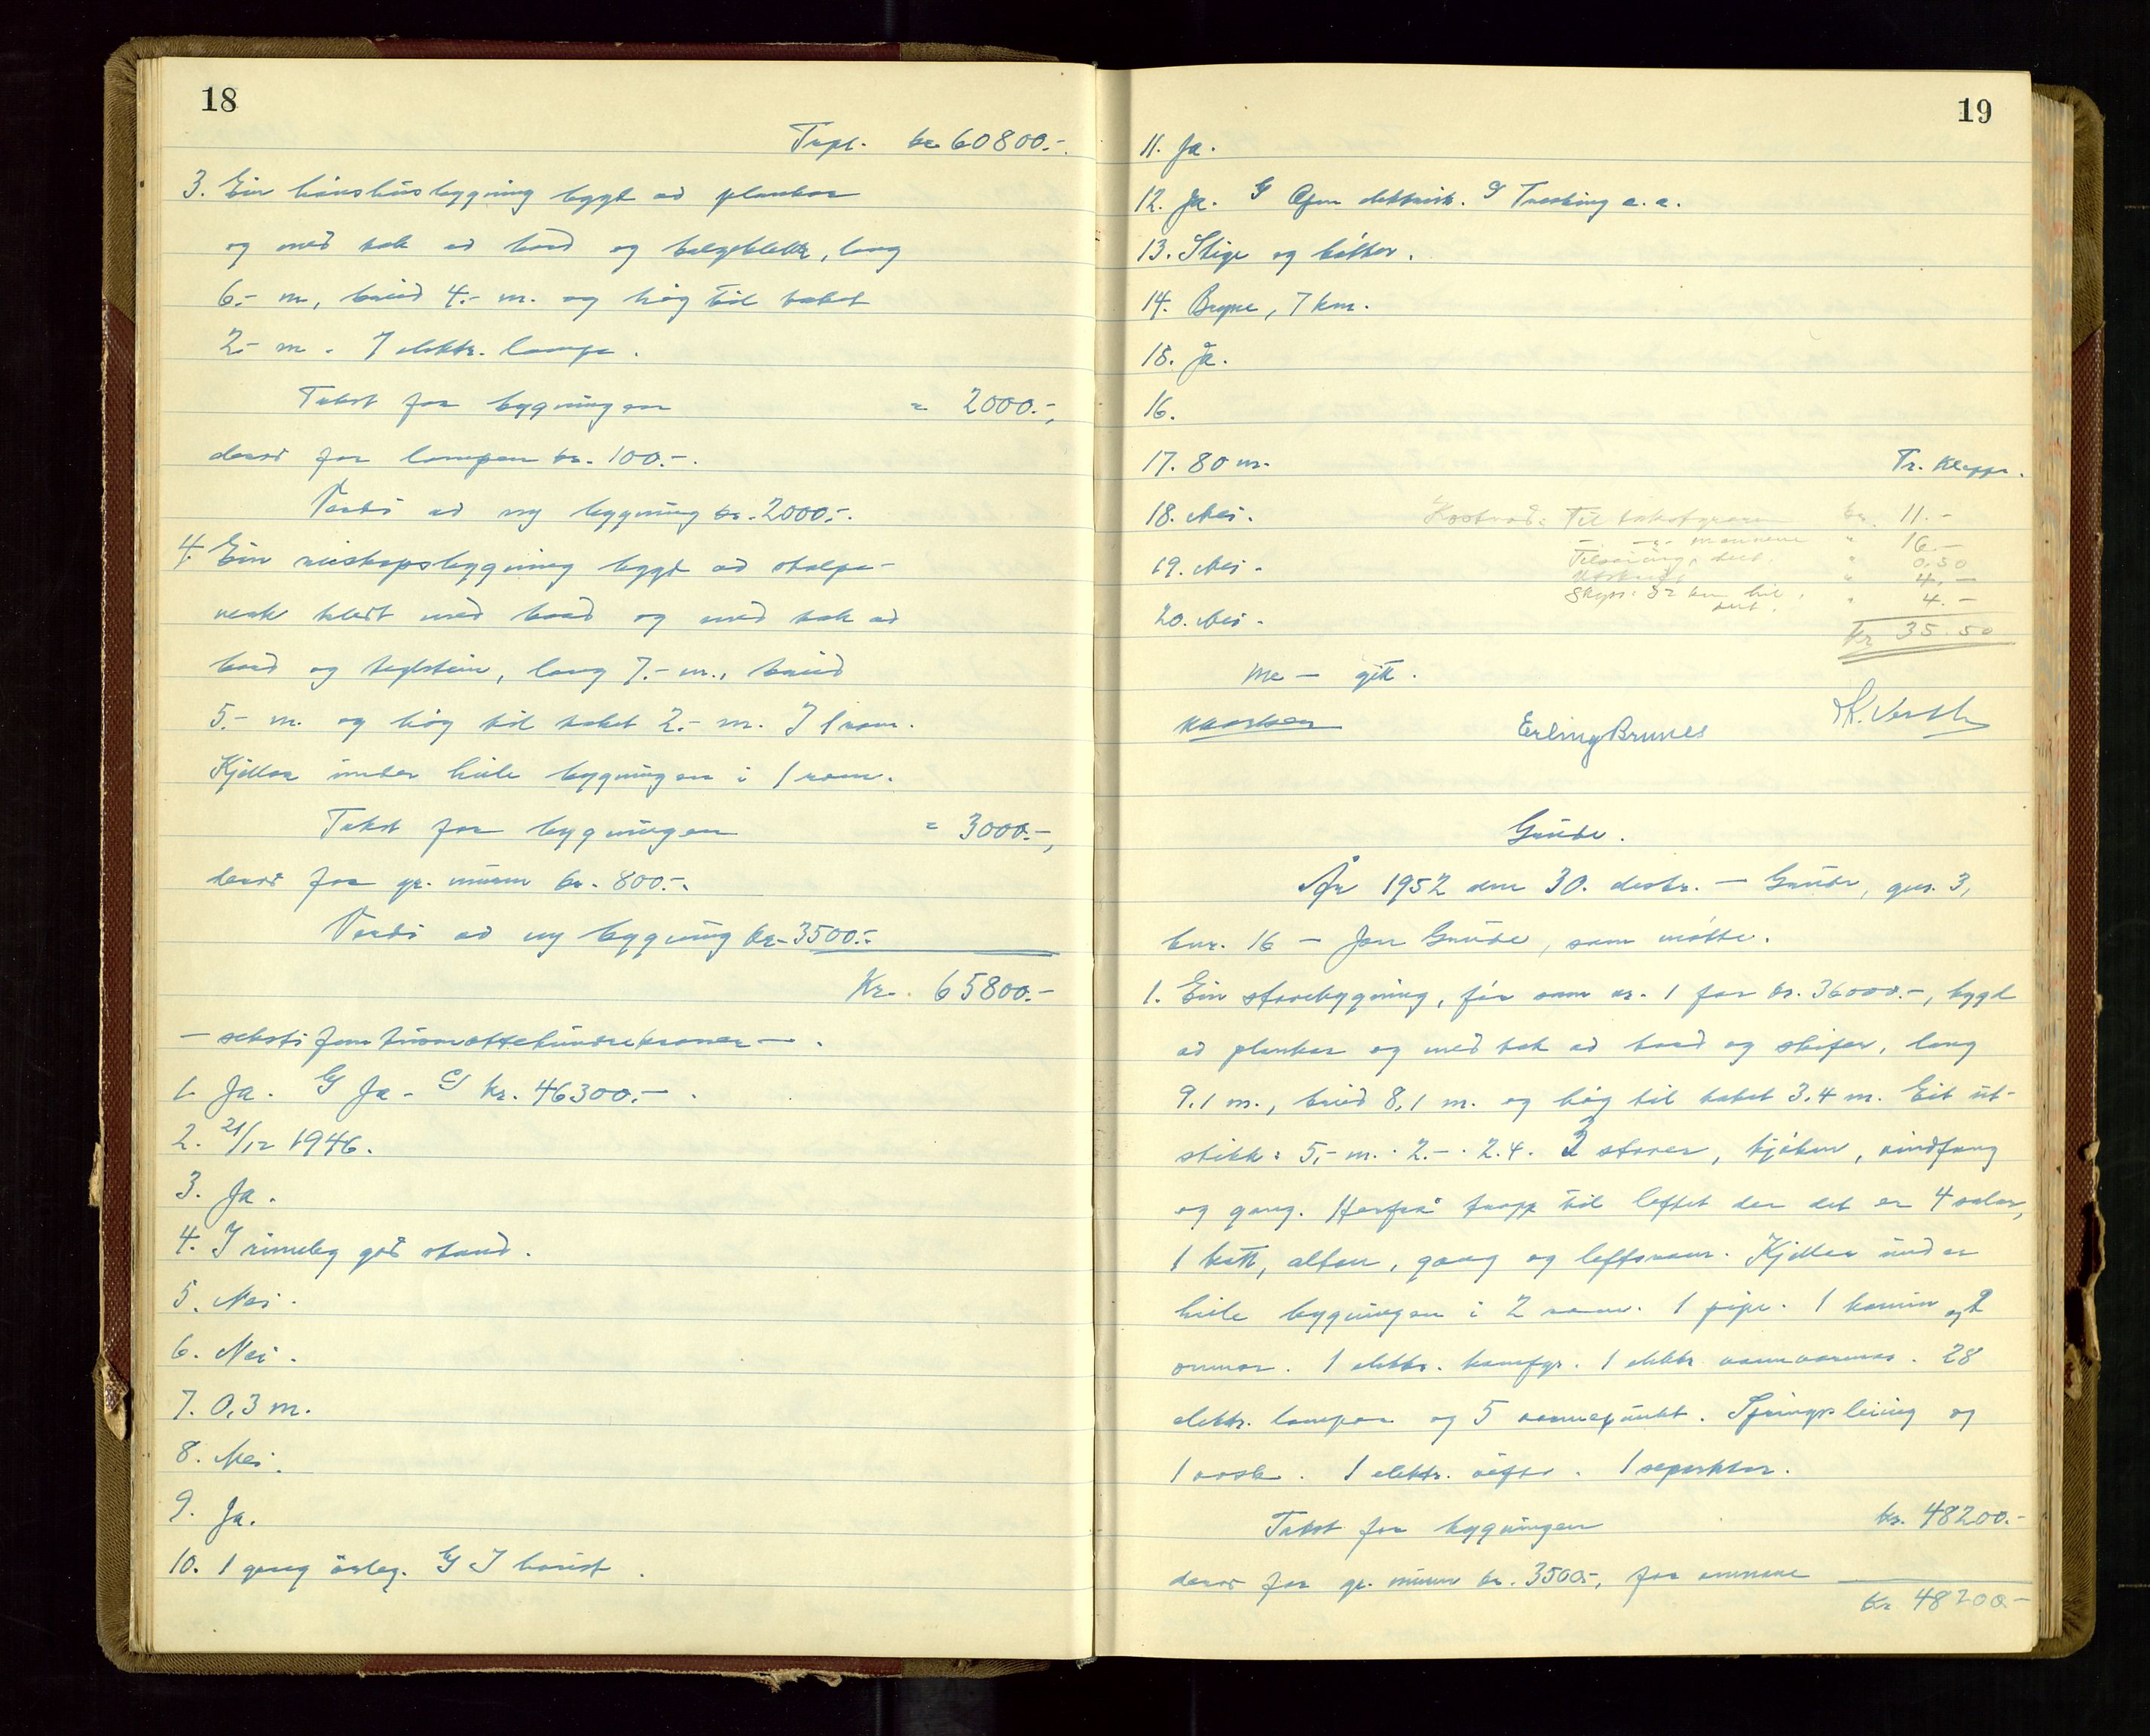 18
Trpt. kr. 60800.-
3. Ein hønshusbygning bygt ad plankar
og med tak ad bord og bølgeblekk, lang
6.- m, breid 4.- m. og høg til taket
2.- m. 1 elektr. lampe.
Takst for bygningen = 2000.-,
derav for lampen kr. 100.-.
Verdi ad ny bygning kr. 2000.-.
4. Ein reiskapsbygning bygt ad stolpe-
verk kledt med bord og med tak ad
bord og teglstein, lang 7.- m., breid
5.- m. og høg til taket 2.- m. I 1 rom.
Kjellar under heile bygningen i 1 rom.
Takst for bygningen = 3000.-,
derav for gr. muren kr. 800.-.
Verdi ad ny bygning kr. 3500.-
Kr. 65800.-
- seksti fem tusen åttehundre kroner - .
1. Ja. G Ja. G kr. 46300.- .
2. 21/12 1946.
3. Ja.
4. I rimeleg god stand.
5. Nei.
6. Nei.
7. 0,3 m.
8. Nei.
9. Ja.
10. 1 gong årleg. G I haust.
19
11. Ja.
12. Ja. G elektrisk. G Tresking a. a.
13. Stige og bøtter.
14. Bryne, 7 km.
15. Ja.
16.
17. 80 m. Tr. Kleppe.
18. Nei. Kostnad: Til takstgrara kr. 11.-
- " - mennene " 16.-
19. Nei. Tilsening, delt. " 0,50
Utskrift " 4.-
Skyss: 32 km bil, " 4.-
delt.
20. Nei. Kr 35.50
Me - gitt.
Erling Brunes
Grude.
År 1952 den 30. desbr. - Grude, gnr. 3,
bnr. 16 - Jon Grude, som møtte.
1. Ein stovebygning, før som nr. 1 for kr. 36000.-, bygt
ad plankar og med tak ad bord og skifer, lang
9.1 m., breid 8,1 m. og høg til taket 3.4 m. Eit ut-
stikk: 5,- m. · 2.- · 2.4. 3 stover, kjøken, vindfang
og gang. Herfrå trapp til loftet der det er 4 salar,
1 kott, altan, gang og loftsrom. Kjellar under
heile bygningen i 2 rom. 1 pipe. 1 kamin og 2
omnar. 1 elektr. komfyr. 1 elektr. varmvarmar. 28
elektr. lampar og 5 varmepunkt. Springleiing og
1 vask. 1 elektr. vifte. 1 separator.
Takst for bygningen kr. 48200.-
derav for gr. muren kr. 3500.-, for omnane
Kr 48200.-